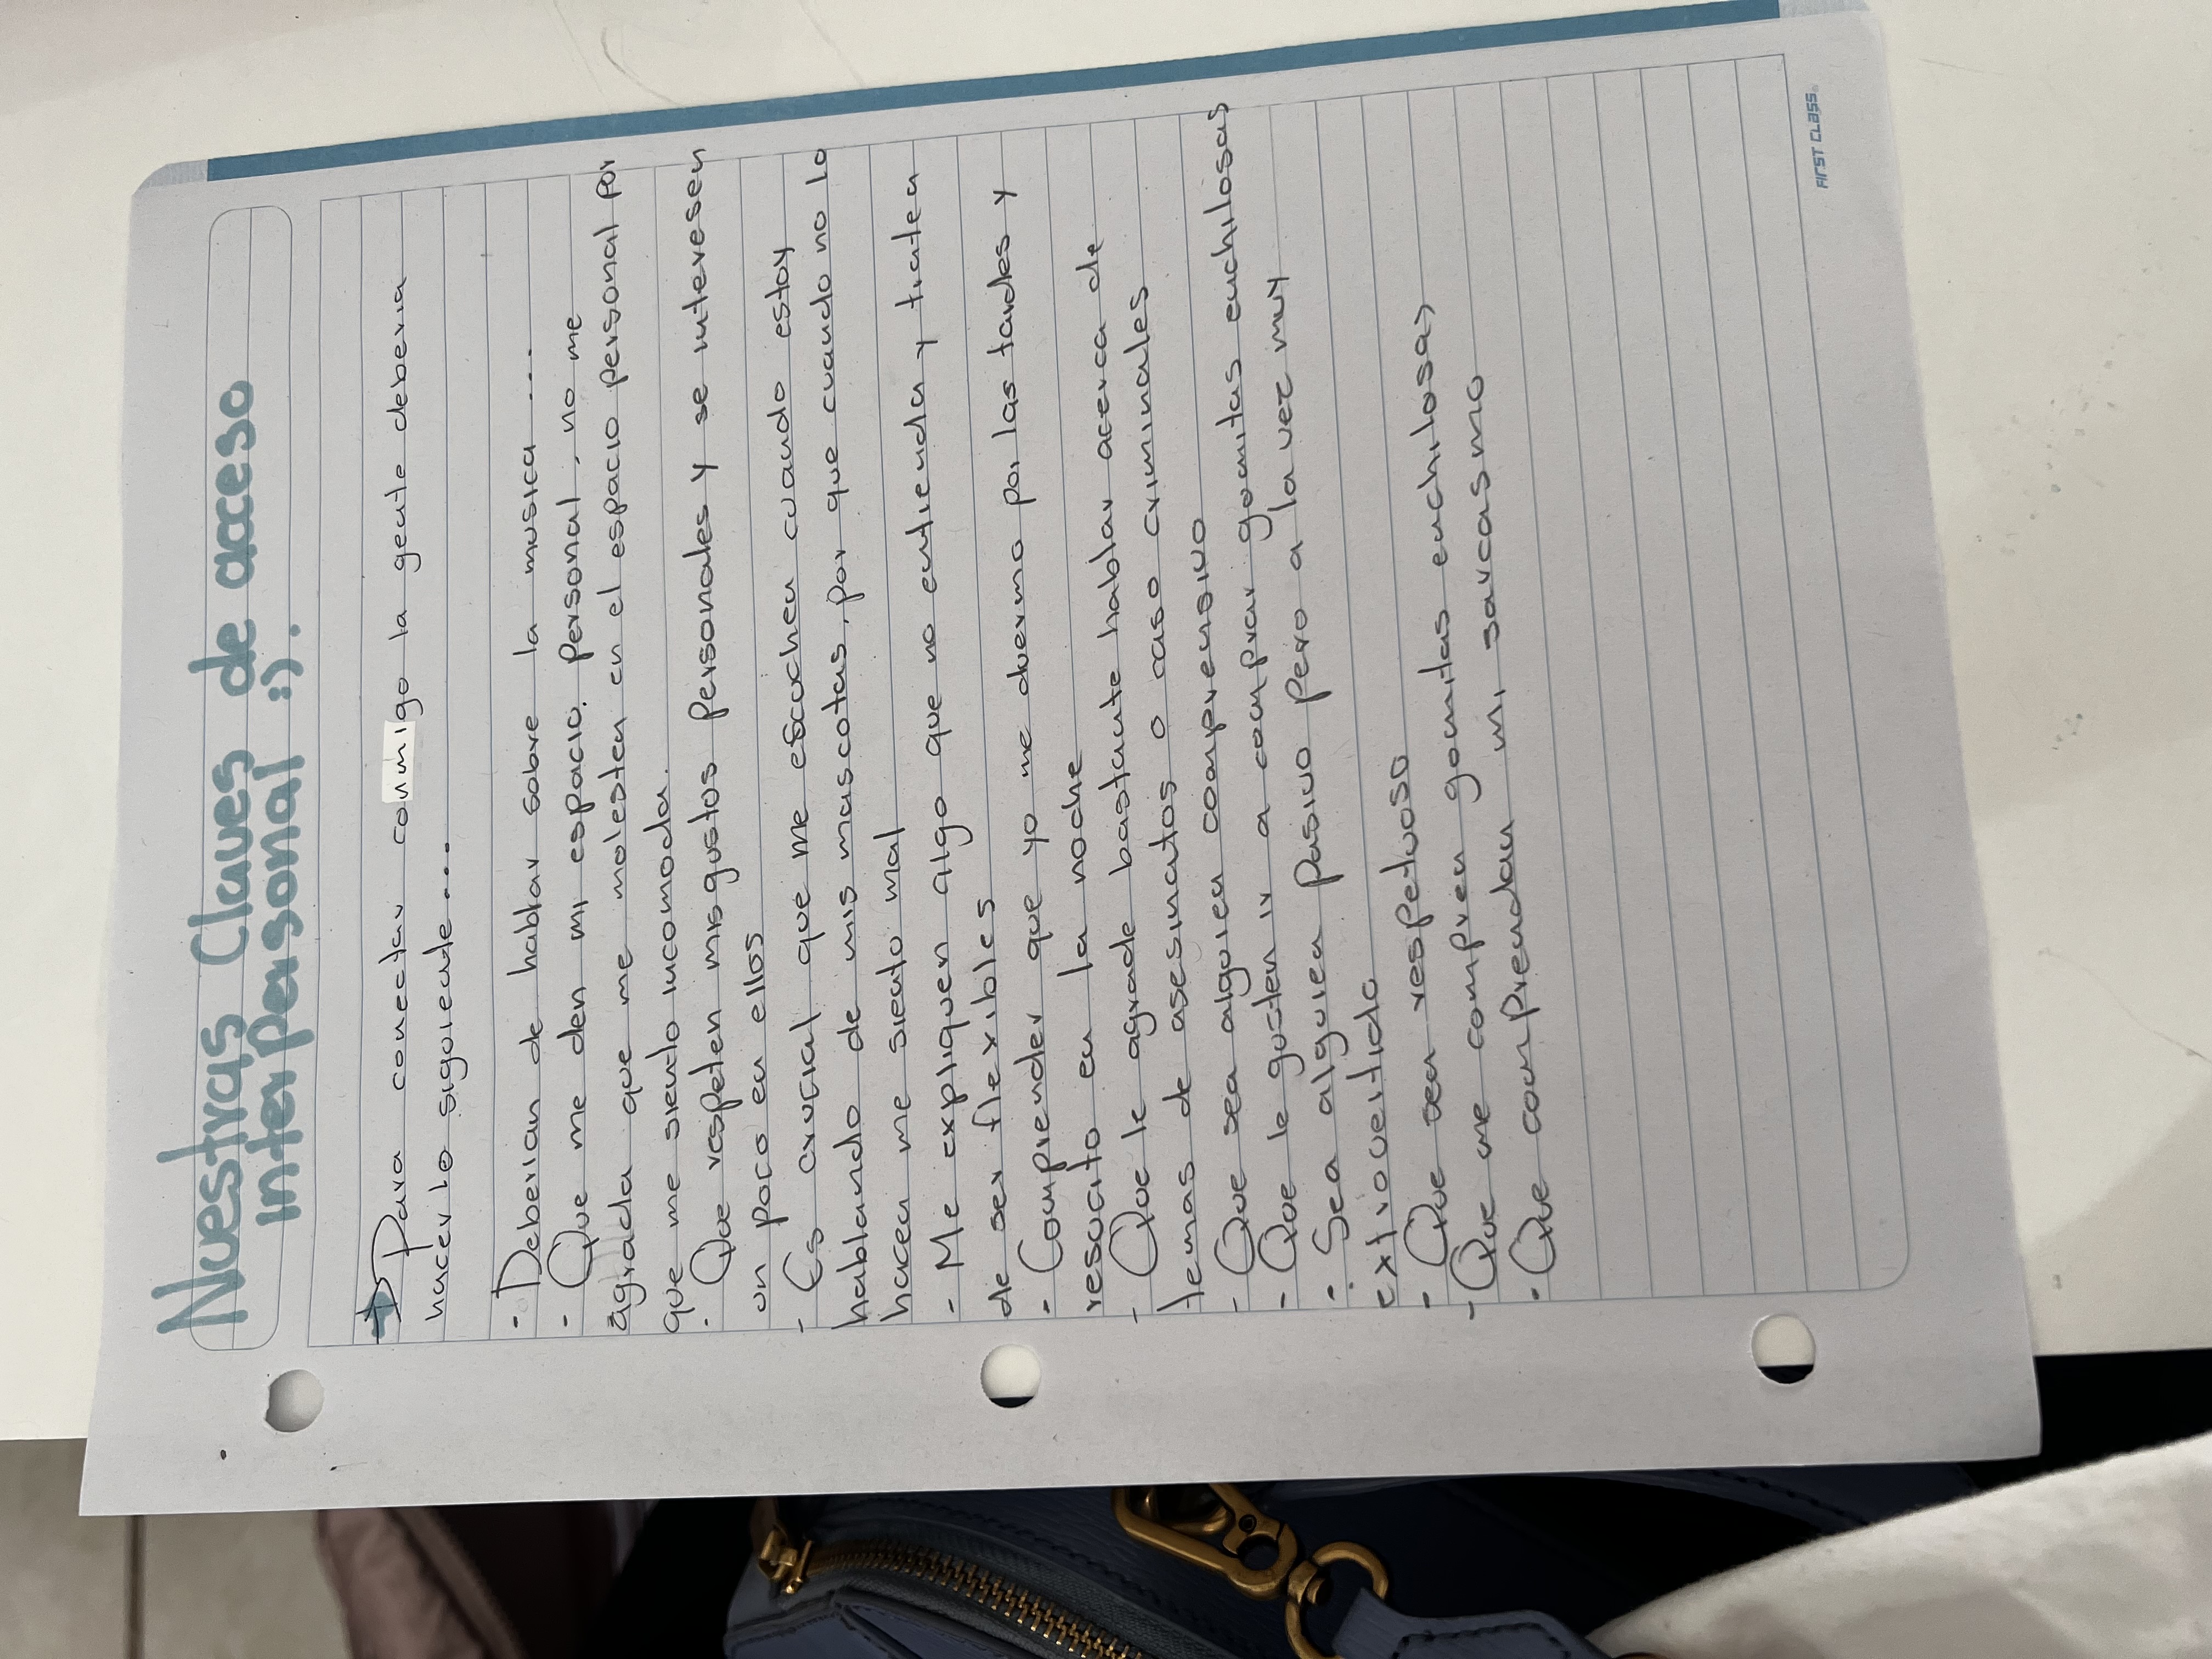 Nuestras Claves de acceso
interpersonal :).
Para conectar conmigo la gente deberia
hacer lo siguiente....
- Deberian de hablar sobre la musica ...
- Que me den mi espacio. personal, no me
agrada que me molesten en el espacio personal por
que me siento incomoda.
- Que respeten mis gustos personales y se interesen
un poco en ellos
- Es crucial que me escuchen cuando estoy
hablando de mis mascotas, por que cuando no lo
hacen me siento mal
- Me expliquen algo que no entienda y traten
de ser flexibles
- Comprender que yo me duermo por las tardes y
resucito en la noche
- Que le agrade bastante hablar acerca de
temas de asesinatos o caso criminales
- Que sea alguien comprensivo
- Que le gusten ir a comprar gomitas enchilosas
- Sea alguien pasivo pero a la vez muy
extrovertido
- Que sea respetuoso
- Que me compren gomitas enchilosas
- Que comprendan mi sarcasmo
FIRST CLASS